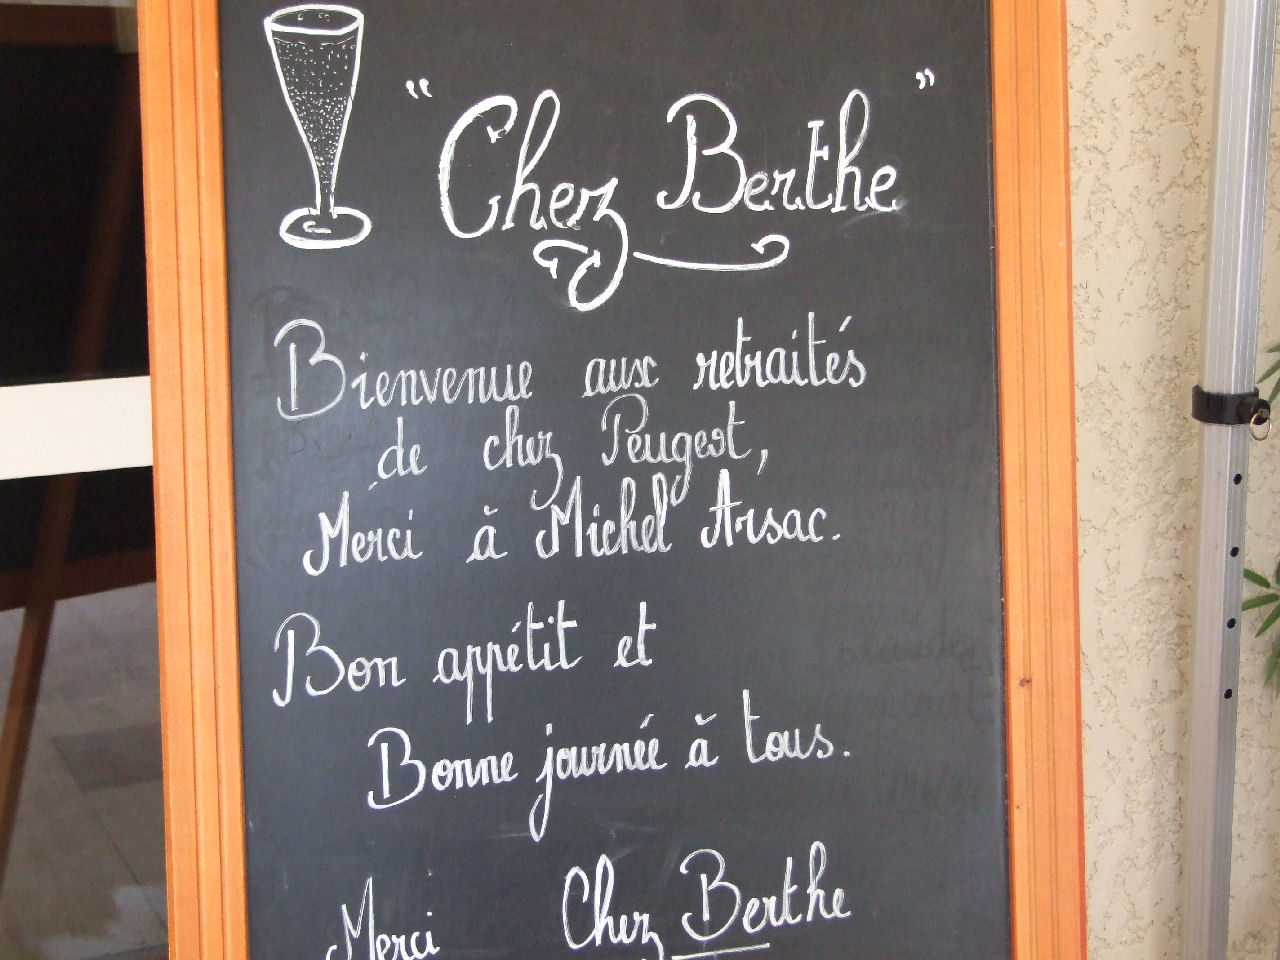 "Chez Berthe"
Bienvenue aux retraités
de chez Peugeot,
Merci à Michel Arsac.
Bon appétit et
Bonne journée à tous.
Merci Chez Berthe